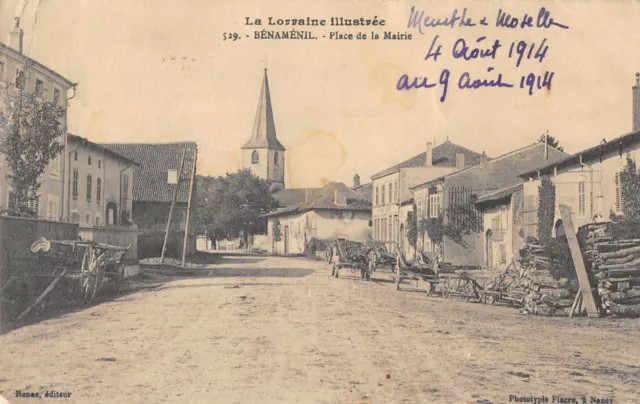 La Lorraine illustrée
529. - BÉNAMÉNIL. - Place de la Mairie
Meurthe & Moselle
4 Août 1914
au 9 Août 1914
Renac, éditeur
Phototypie Fiacre, à Nancy